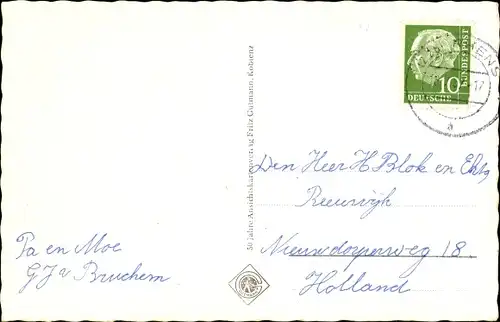 Pa en Moe
G J v Bruchem
50 Jahre Ansichtskartenverlag Fritz Gutmann, Koblenz
10
DEUTSCHE
BUNDESPOST
17
a
Den Heer H Blok en Echtg
Reeuwijk
Nieuwdorperweg 18.
Holland